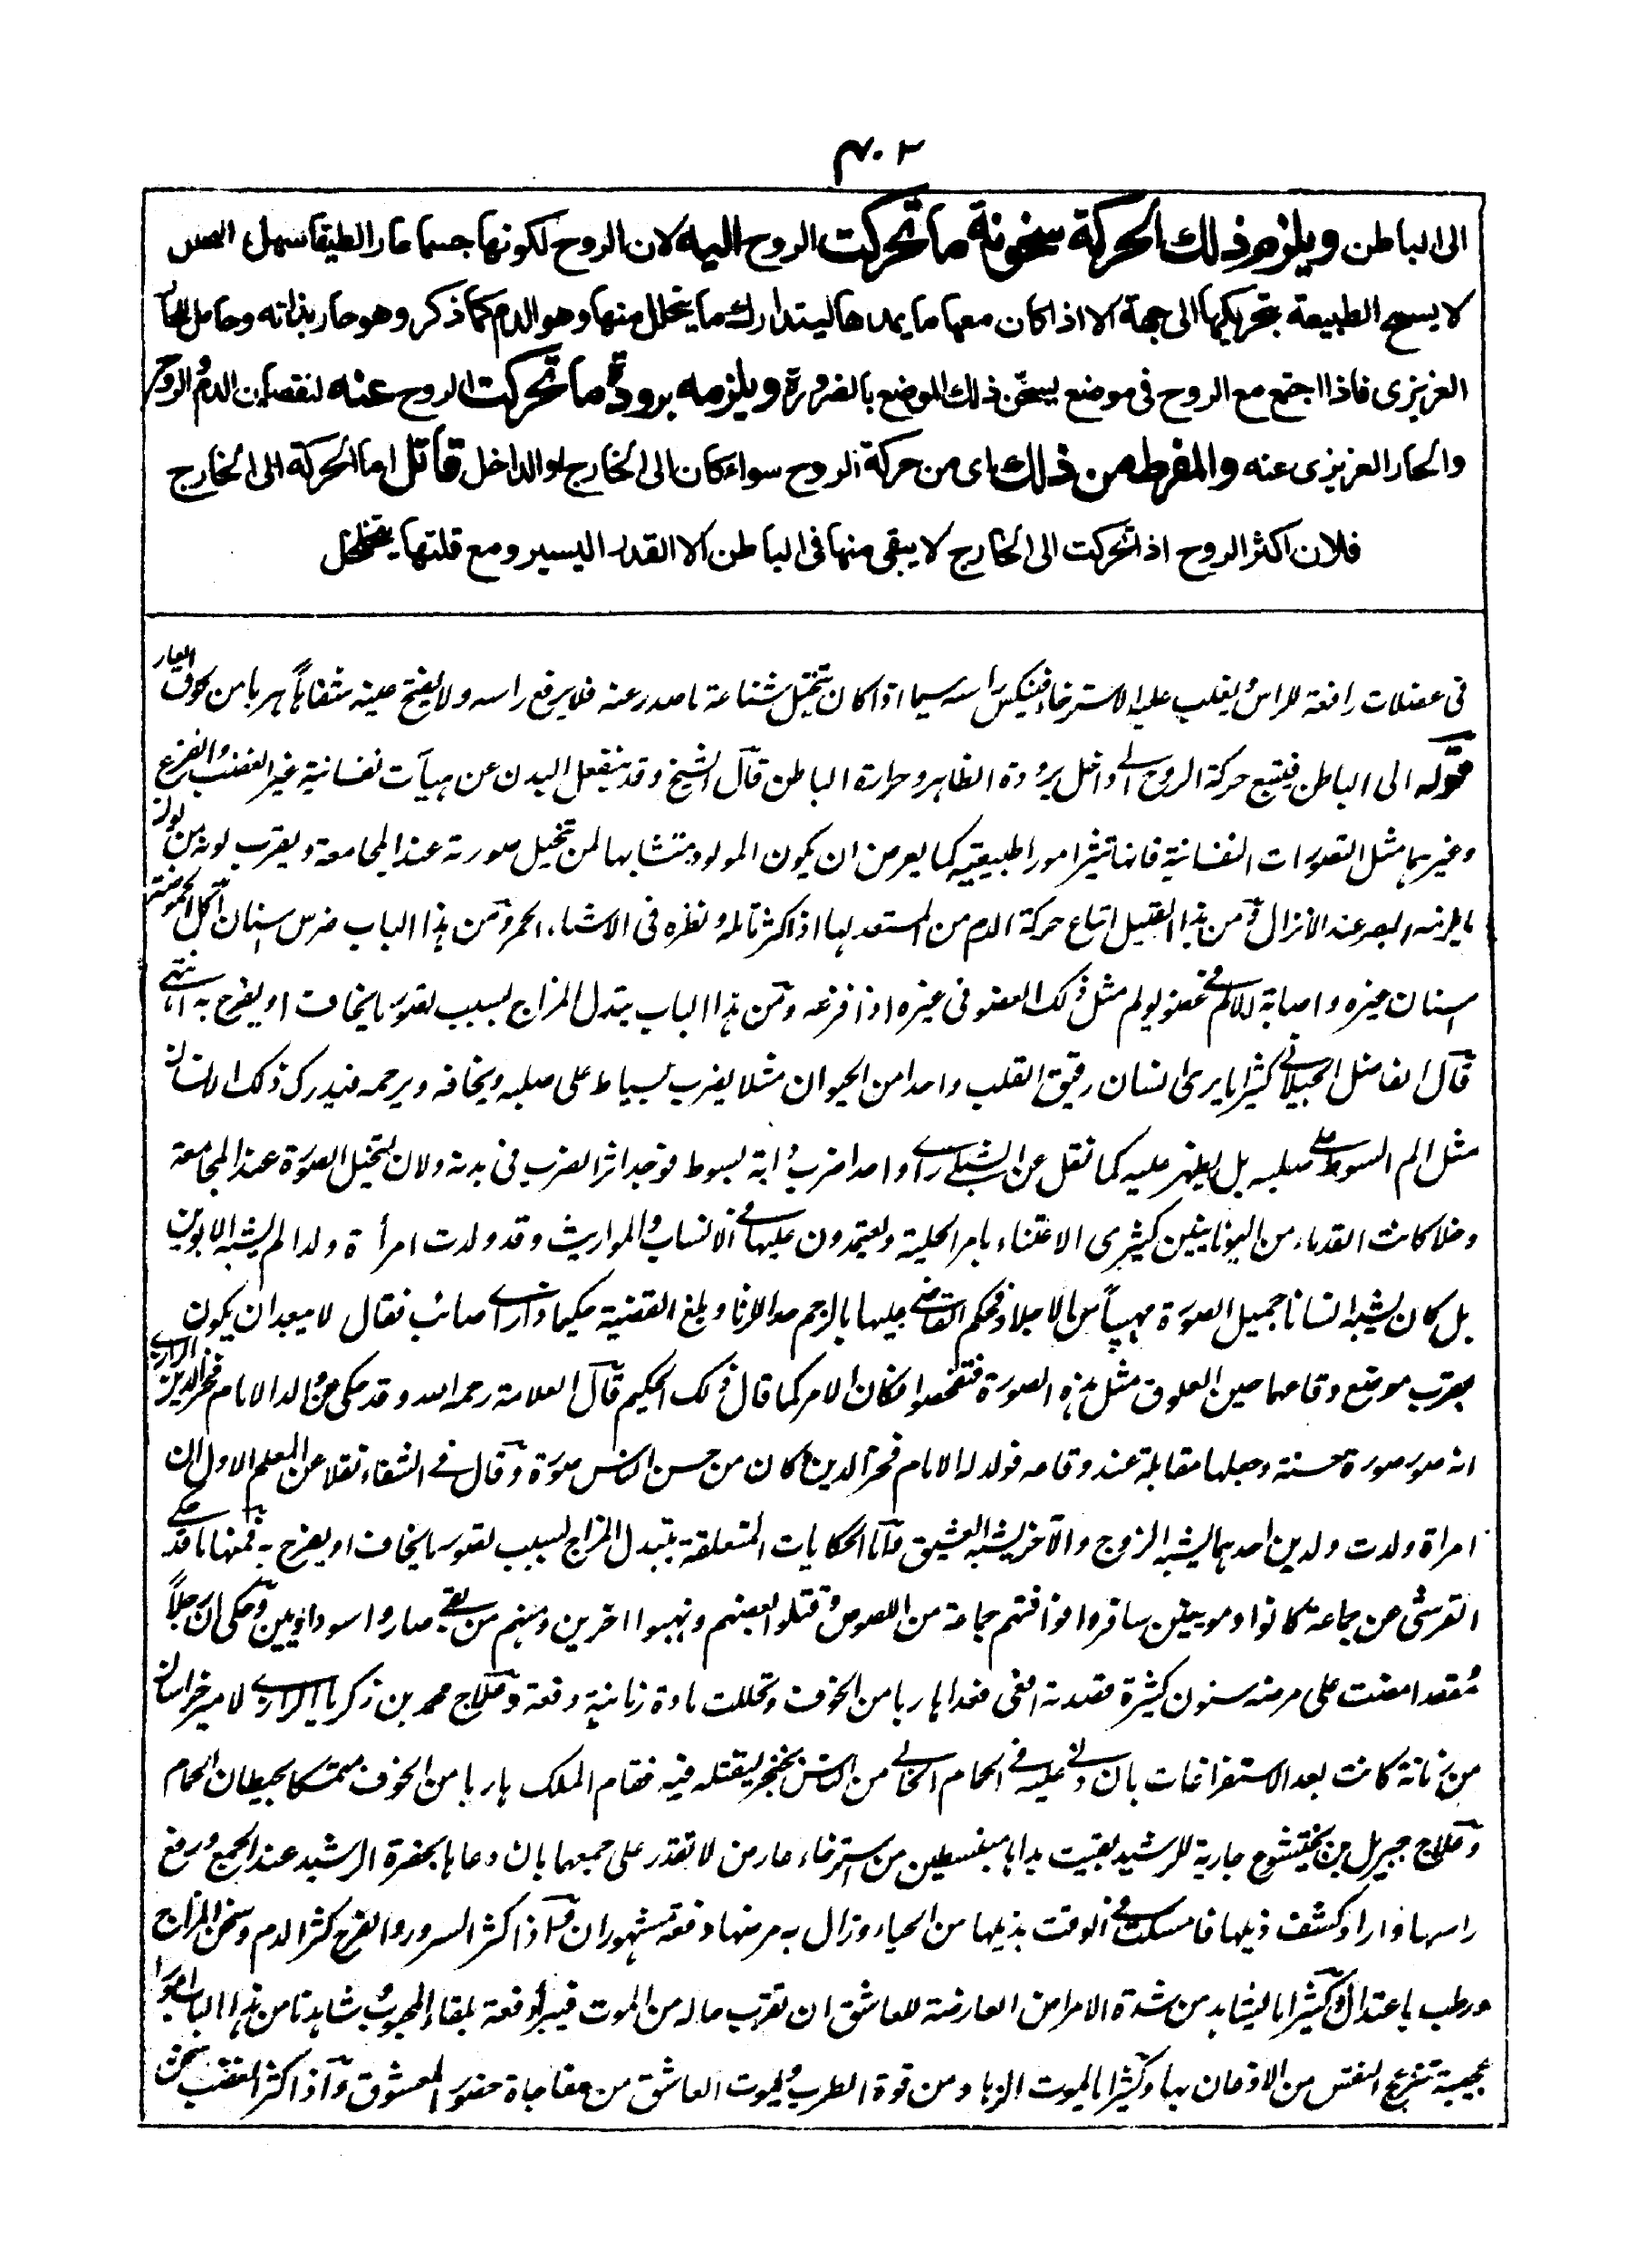 ٤٠٢
الى الباطن ويلزم ذلك الحركة سخونة ما تحركت الروح اليه لان الروح لكونها جسما حارا لطيفا سهل التحلل
لا يسمح الطبيعة بتحريكها الى جهة الا اذا كان معها ما يمدها ليتدارك ما يتحلل منها وهو الدم كما ذكر وهو حار بذاته وحامل للحار
الغريزى فاذا اجتمع مع الروح فى موضع يسخن ذلك الموضع بالضرورة ويلزمه برودة ما تحركت الروح عنه لنقصان الدم والروح
والحار الغريزى عنه والمفرط من ذلك اى من حركة الروح سواء كان الى الخارج او الداخل قاتل اما الحركة الى الخارج
فلان اكثر الروح اذا تحركت الى الخارج لا يبقى منها فى الباطن الا القدر اليسير ومع قلتها يتخلخل
فى عضلات رافعة للراس يغلب عليه الاسترخاء فينكس راسه سيما اذا كان تخيل شناعة ما صدر عنه فلا يرفع راسه ولا يفتح عينه هربا من لحوق العار
قوله الى الباطن فيتبع حركة الروح الى داخل برودة الظاهر وحرارة الباطن قال الشيخ وقد ينفعل البدن عن هيآت نفسانية غير الغضب والفزع
وغيرهما مثل التصورات النفسانية فانها تثير امورا طبيعية كما يعرض ان يكون المولود متشابها لمن تخيل صورته عند المجامعة ويقرب لونه من لون
ما يلزمه البصر عند الانزال ومن هذا القبيل اتباع حركة الدم من المستعد لها اذا كثر تامله ونظره فى الاشياء الحمر ومن هذا الباب ضرس الاسنان لاكل الحموضة
اسنان غيره واصابة الالم فى عضو يولم مثل ذلك العضو فى غيره اذا فزعه ومن هذا الباب يتبدل المزاج بسبب تصور ما يخاف او يفرح به انتهى
قال الفاضل الجيلانى كثيرا ما يرى انسان رقيق القلب واحدا من الحيوان مثلا يضرب بسياط على صلبه ويخافه ويرحمه فيدرك ذلك الانسان
مثل الم السوط على صلبه بل يظهر عليه كما نقل عن الشبلى راى واحدا ضرب دابة بسوط فوجد اثر الضرب فى بدنه ولان لتخيل الصورة عند المجامعة
دخلا كانت القدماء من اليونانيين كثيرى الاعتناء بامر الحلية ويعتمدون عليها فى الانساب والمواريث وقد ولدت امرأة ولدا لم يشبه الابوين
بل كان يشبه انسانا جميل الصورة فحكم القاضى عليها بالرجم حد الزنا وبلغ القضية حكيما ذا راى صائب فقال لا يبعد ان يكون
بقرب موضع وقاعهما حين العلوق مثل هذه الصورة فتفحصوا فكان الامر كما قال ذلك الحكيم قال العلامة رحمه الله وقد حكى عن والد الامام فخر الدين الرازى
انه صور صورة حسنة وجعلها مقابلة عند وقاعه فولد له الامام فخر الدين كان من احسن الناس صورة وقال فى الشفاء نقلا عن المعلم الاول ان
امراة ولدت ولدين احدهما يشبه الزوج والآخر يشبه العشيق واما الحكايات المتعلقة بتبدل المزاج بسبب تصور ما يخاف او يفرح به فمنها ما قد حكى
القرشى عن جماعة كانوا دمويين سافروا فوافتهم جماعة من اللصوص وقتلوا بعضهم ونهبوا اخرين ومنهم من بقى صاروا سوداويين وحكى ان رجلاً
مقعدا مضت على مرضه سنون كثيرة فقصدته افعى فغدا هاربا من الخوف وتحللت مادة زمانيته دفعة وعلاج محمد بن زكريا الرازى لامير خراسان
من زمانة كانت بعد الاستفراغات بان دلى عليه فى الحمام الخالى من الناس بخنجر ليقتله فيه فقام الملك هاربا من الخوف متمسكا بحيطان الحمام
وعلاج جبريل بن بختيشوع جارية للرشيد بقيت يداها منبسطين من استرخاء عارض لا تقدر على جمعها بان دعاها بحضرة الرشيد عند الجمع ورفع
راسها واراد كشف ذيلها فامسكت فى الوقت بذيلها من الحياء وزال به مرضها دفعة مشهوران واذا كثر السرور والفرح كثر الدم وسخن المزاج
ورطب باعتدال وكثيرا ما يشاهد من شدة الامراض العارضة للعاشق ان تقرب حاله من الموت فيبرأ دفعة بلقاء المحبوب شاهدنا من هذا الباب امورا
عجيبة تنزع النفس من الاذعان بها وكثيرا ما يموت الزهاد من قوة الطرب ويموت العاشق من مفاجاة حضور المعشوق واذا كثر الغضب سخن